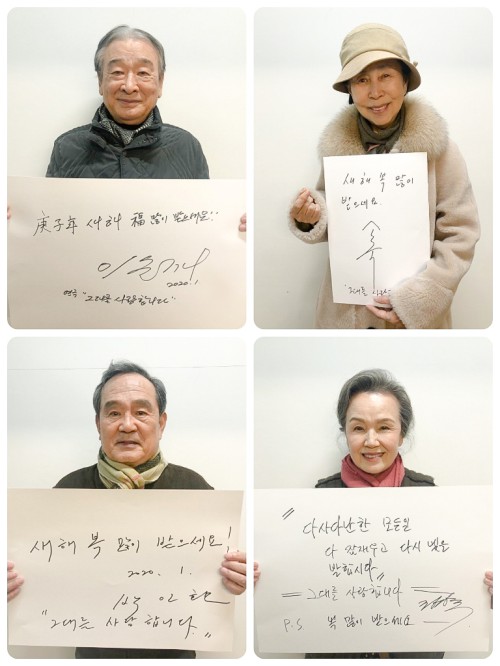 庚子年 새해 福 많이 받으세요!
이순재
2020.1
연극 "그대를 사랑합니다"
새해 복 많이
받으세요.
"그대를 사랑
새해 복 많이 받으세요!
2020. 1.
박인환
"그대를 사랑합니다."
"다사다난한 모든일
다 잠재우고 다시 빛을
발합시다"
그대를 사랑합니다
P.S 복 많이 받으세요